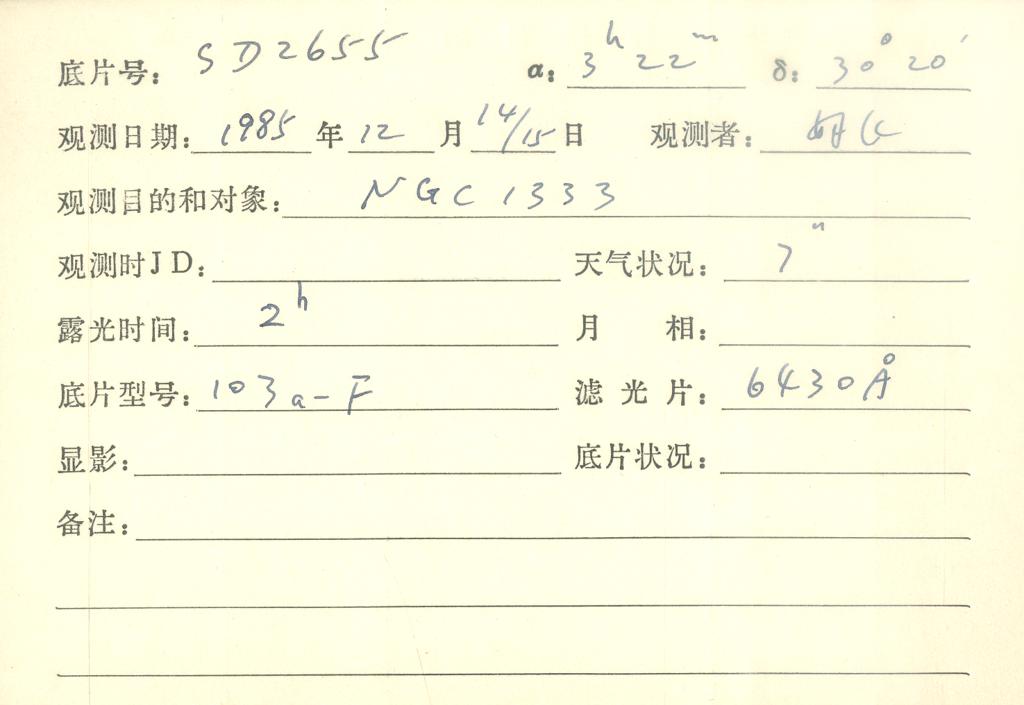 底片号: SD2655 α: 3h 22m δ: 30° 20′
观测日期: 1985 年 12 月 14/15 日 观测者:
观测目的和对象: NGC 1333
观测时JD: 天气状况: 7"
露光时间: 2h 月 相:
底片型号: 103a-F 滤光片: 6430Å
显影: 底片状况:
备注: